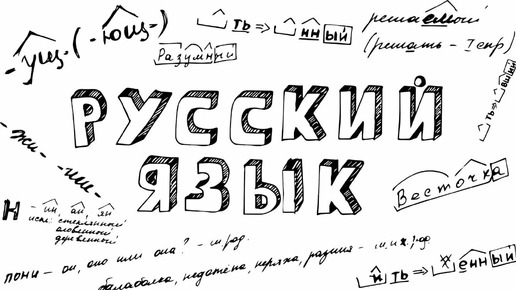 -ущ- (-ющ-)
ть ⇒ нный
решаемый
(решать - I спр)
Разумный
РУССКИЙ
ЯЗЫК
ть ⇒ вший
- жи -
- ши -
Весточка
Н - ин, ан, ян
искл: стеклянный
оловянный
деревянный
пони - он, оно или она? - м.род.
балаболка, недотёпа, неряха, разиня - м. и ж. род
и ть ⇒ енный